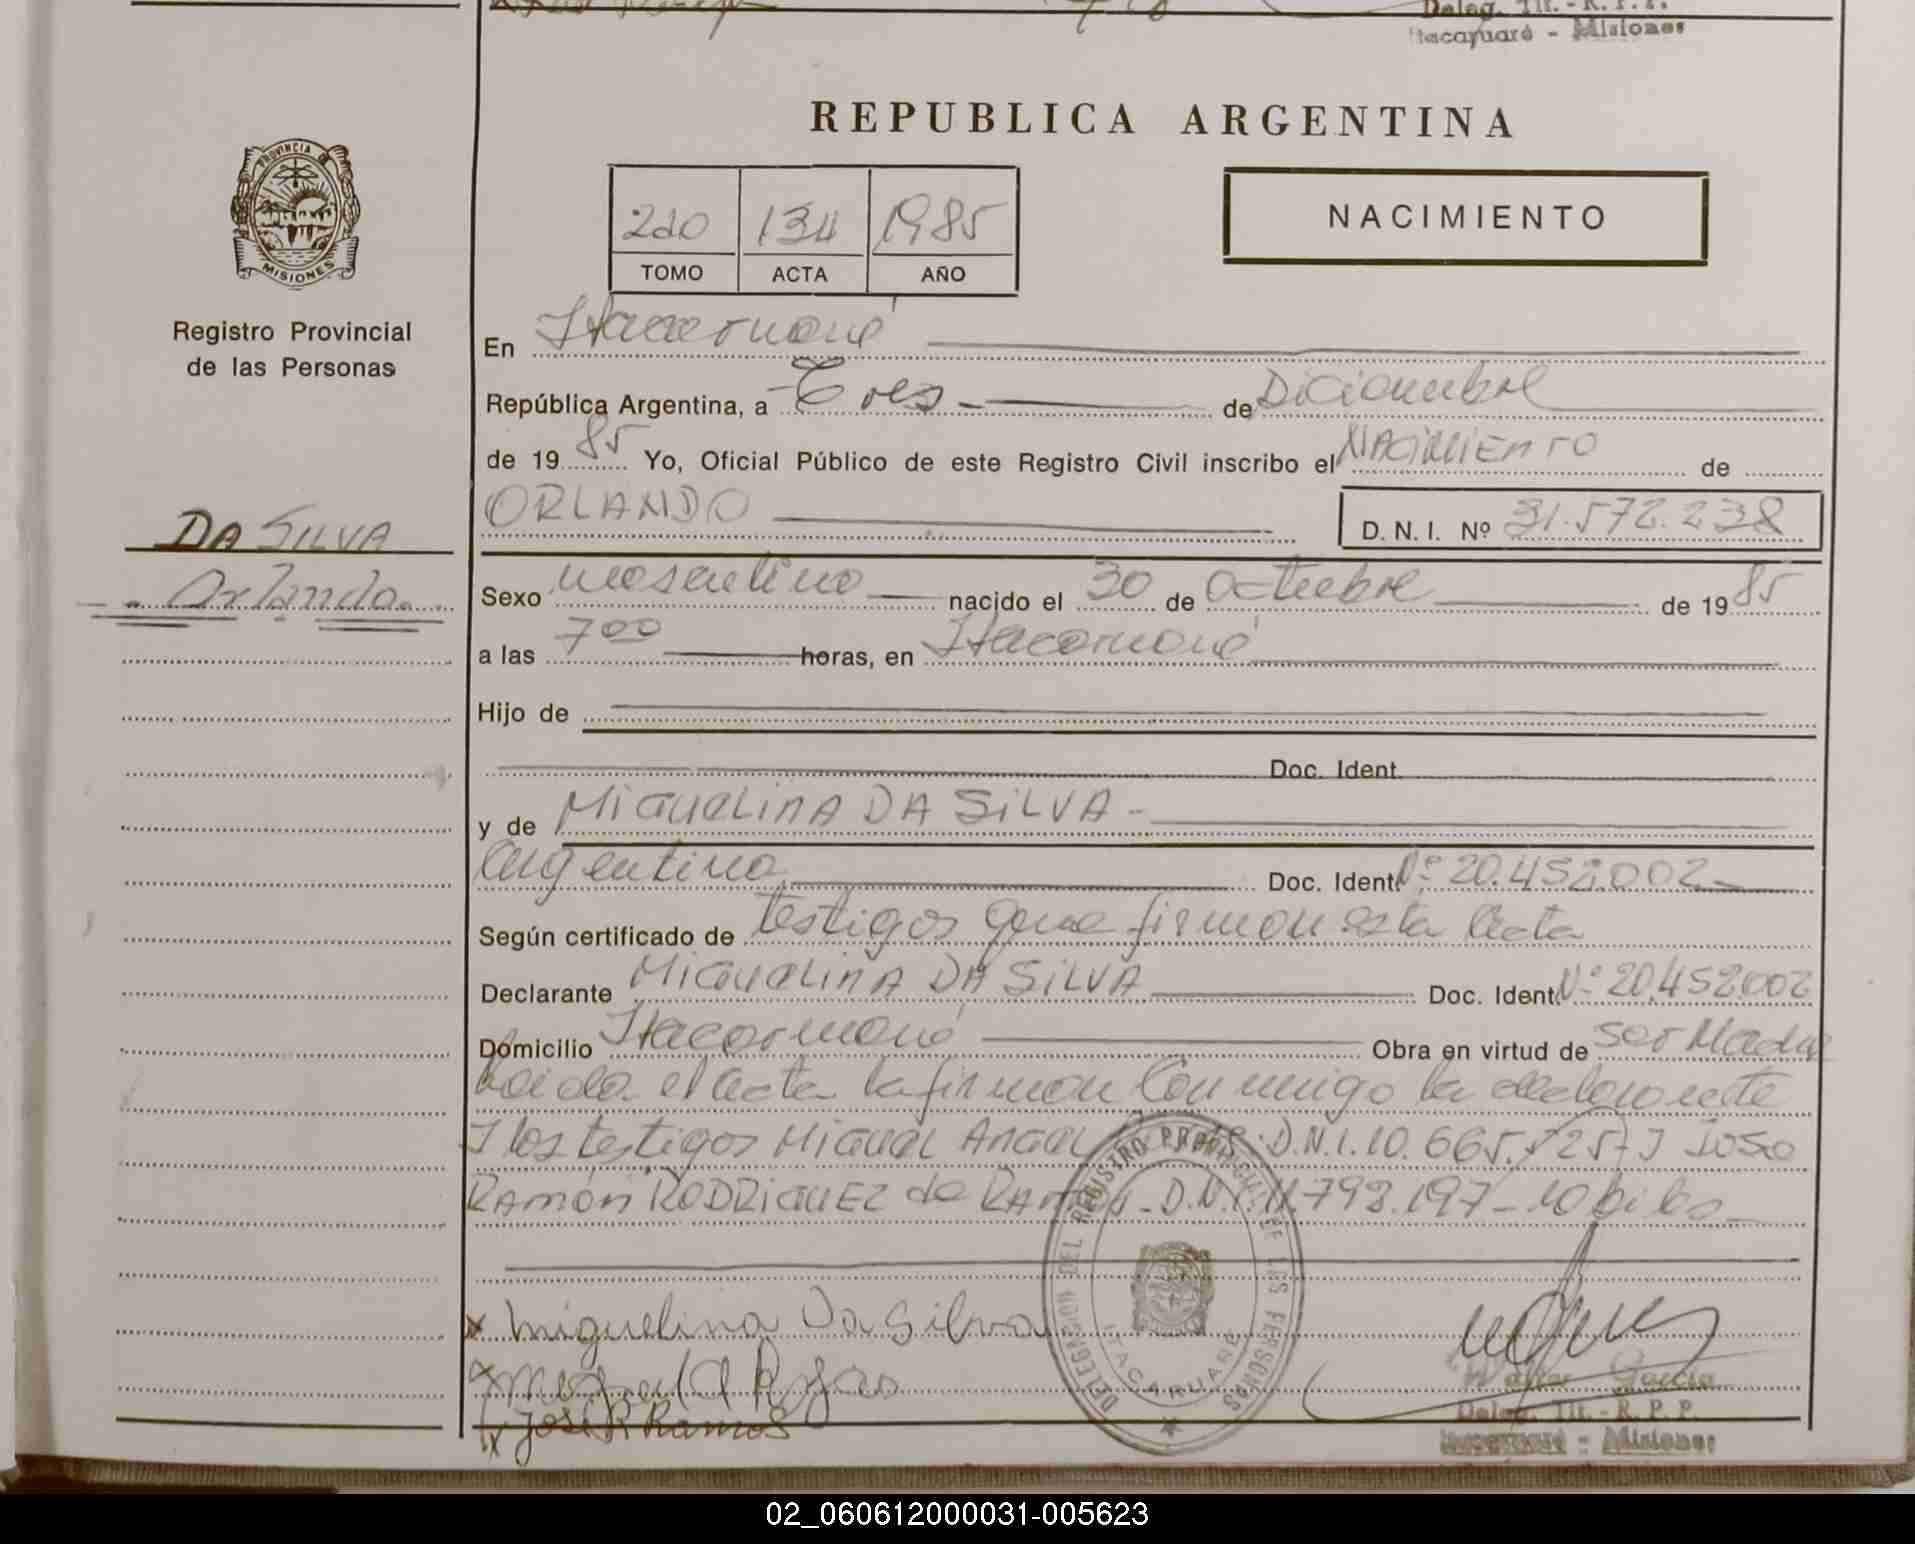 Deleg. Tit. - R. P. P.
Itacaruaré - Misiones
REPUBLICA ARGENTINA
PROVINCIA DE
MISIONES
Registro Provincial
de las Personas
2do 134 1985
TOMO ACTA AÑO
NACIMIENTO
En Itacaruaré
República Argentina, a Tres de Diciembre
de 1985 Yo, Oficial Público de este Registro Civil inscribo el NACIMIENTO de
ORLANDO D. N. I. Nº 31.572.238
DA SILVA
Orlando
Sexo masculino nacido el 30 de Octubre de 1985
a las 7 00 horas, en Itacaruaré
Hijo de
Doc. Ident.
y de MIGUELINA DA SILVA -
Argentina Doc. Ident. Nº 20.452.002
Según certificado de testigos que firman esta Acta
Declarante MIGUELINA DA SILVA Doc. Ident. Nº 20.452.002
Domicilio Itacaruaré Obra en virtud de ser Madre
Leida el acta la firman Conmigo la declarante
Y los testigos MIGUEL ANGEL D.N.I. 10.665.725 - Y JOSE
RAMÓN RODRIGUEZ de RAMOS - D.N.I. 11.793.197 -
DELEGACION DEL REGISTRO PROVINCIAL DE LAS PERSONAS
ITACARUARE
x Miguelina Da Silva
x Miguel A Rojas
x José R Ramos
Walter García
Deleg. Tit. - R. P. P.
Itacaruaré - Misiones
02_060612000031-005623